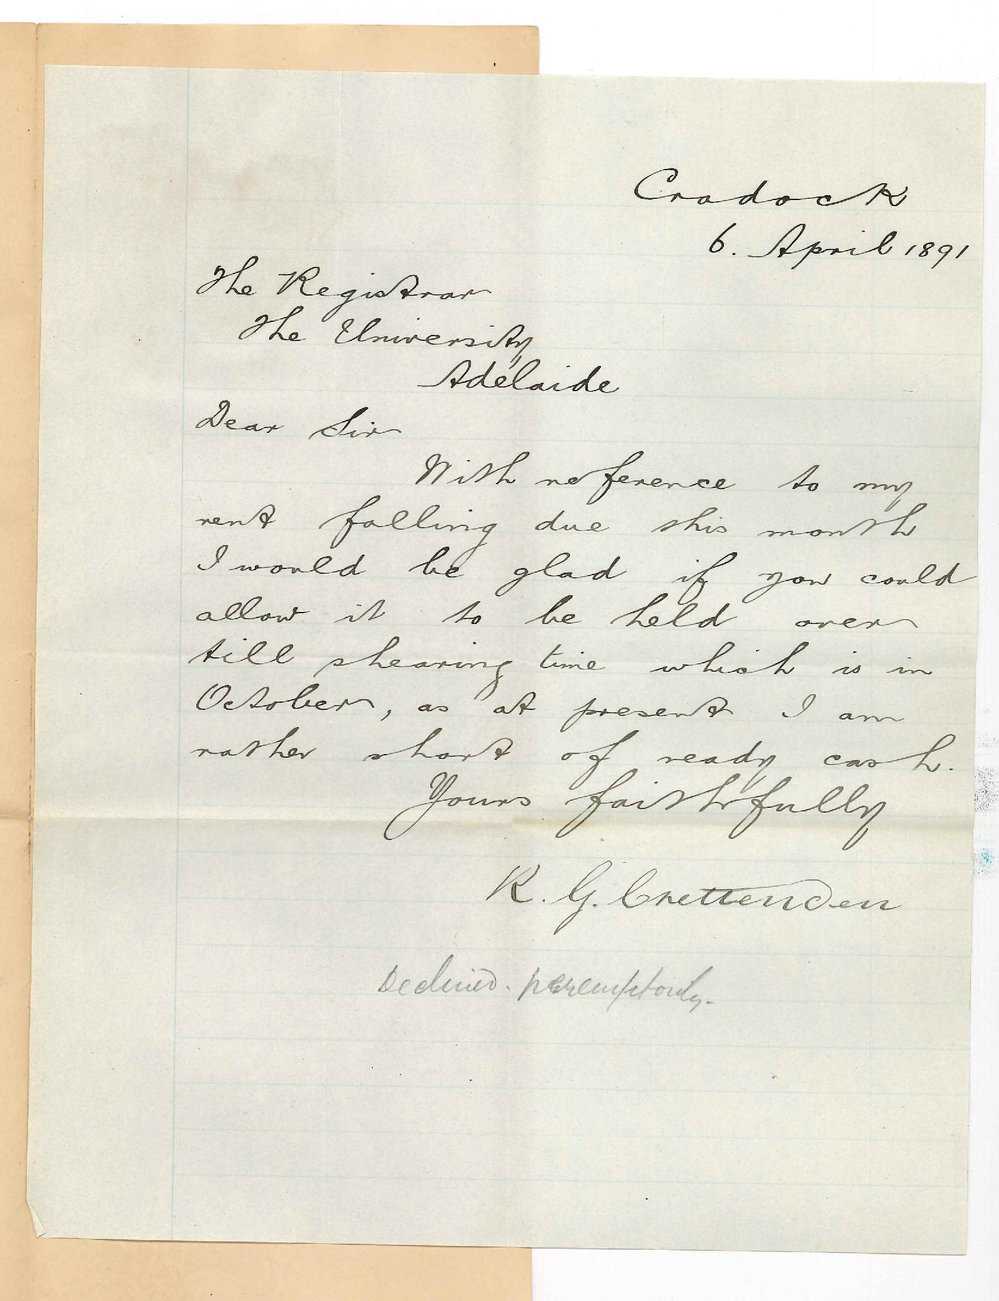 Cradock
6. April 1891
The Registrar
The University
Adelaide
Dear Sir
With reference to my
rent falling due this month
I would be glad if you could
allow it to be held over
till shearing time which is in
October, as at present I am
rather short of ready cash.
Yours faithfully
R. G. Crettenden
Declined. peremptorily.